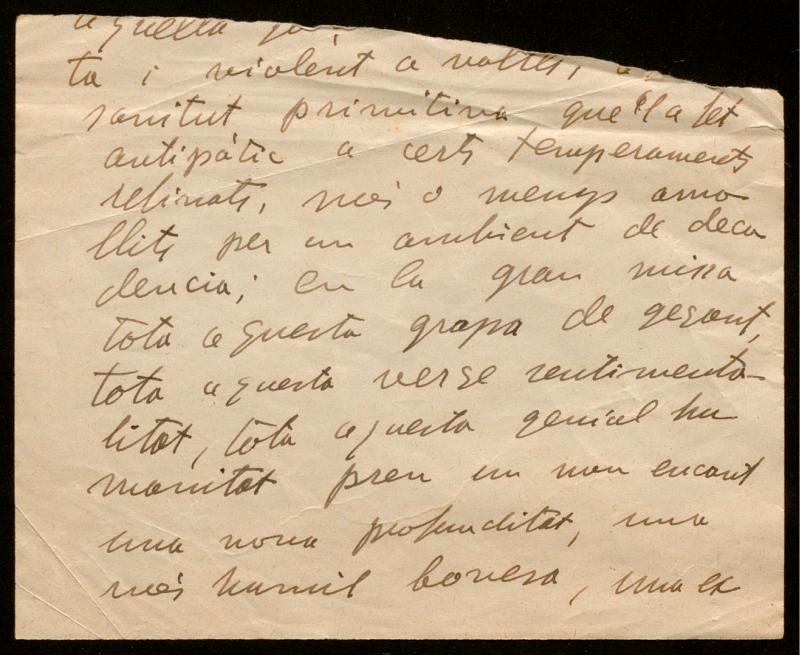 aquella
ta i violént a voltes,
sanitut primitiva que'l a fet
antipàtic a certs temperaments
refinats, més o menys amo
llits per un ambient de deca
dencia; en la gran missa
tota aquesta grapa de gegant,
tota aquesta verge sentimenta-
litat, tota aquesta genial hu
manitat pren un nou encant
una nova profunditat, una
més humil bonesa, una ex